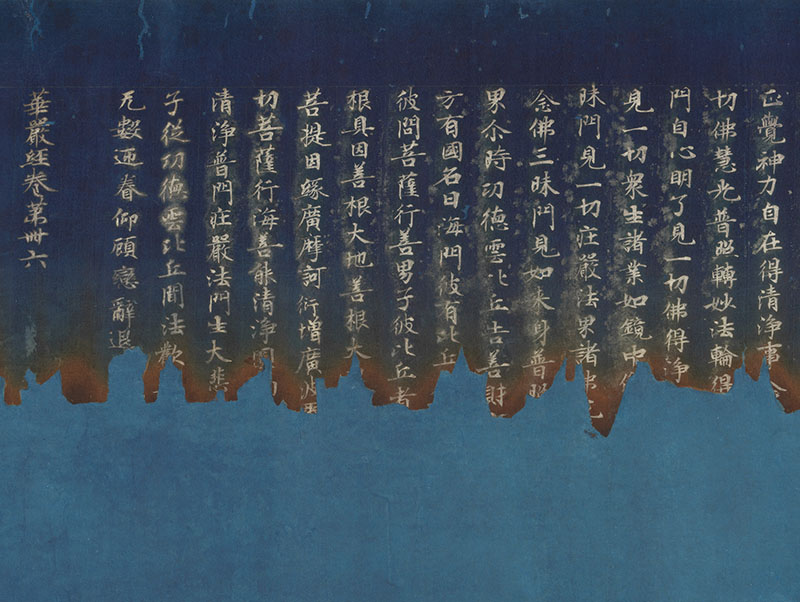 正覺神力自在得清淨事念
切佛慧光普照轉妙法輪得
門自心明了見一切佛得淨
見一切衆生諸業如鏡中
昧門見一切莊嚴法界諸佛
念佛三昧門見如来身普照
界尒時功德雲比丘告善財
方有國名曰海門彼有比丘
彼問菩薩行善男子彼比丘者
根具因善根大地善根大
菩提因緣廣摩訶衍增廣
切菩薩行海善能清淨
清淨普門莊嚴法門生大悲
子從功德雲比丘聞法歡
无數迊眷仰顧戀辭退
華嚴経卷第卌六